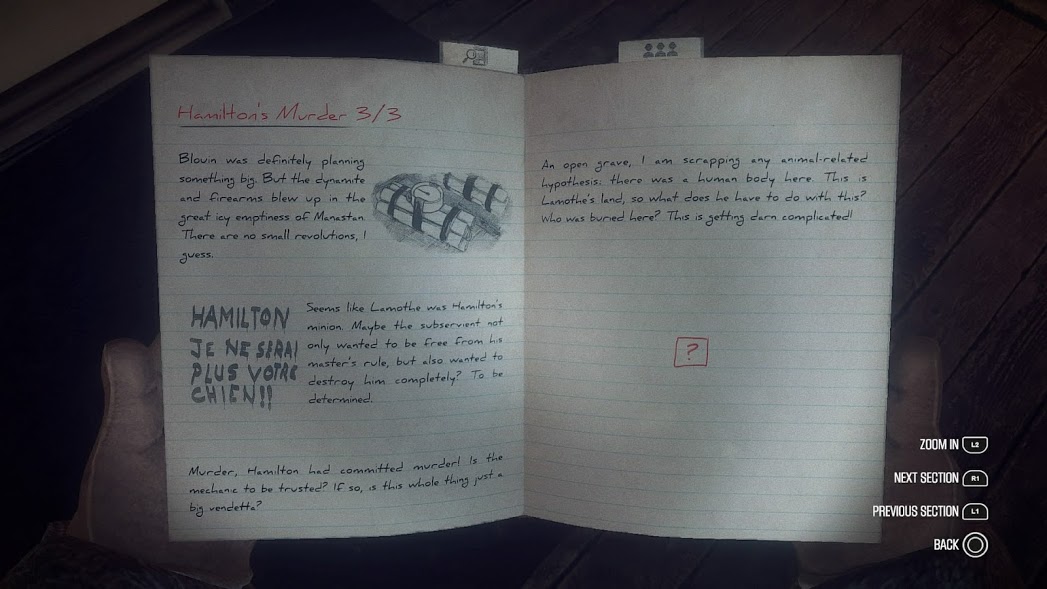 Hamilton's Murder 3/3
Blouin was definitely planning
something big. But the dynamite
and firearms blew up in the
great icy emptiness of Manastan.
There are no small revolutions, I
guess.
HAMILTON
JE NE SERAI
PLUS VOTRE
CHIEN!!
Seems like Lamothe was Hamilton's
minion. Maybe the subservient not
only wanted to be free from his
master's rule, but also wanted to
destroy him completely? To be
determined.
Murder, Hamilton had committed murder! Is the
mechanic to be trusted? If so, is this whole thing just a
big vendetta?
An open grave, I am scrapping any animal-related
hypothesis: there was a human body here. This is
Lamothe's land, so what does he have to do with this?
Who was buried here? This is getting darn complicated!
?
ZOOM IN L2
NEXT SECTION R1
PREVIOUS SECTION L1
BACK